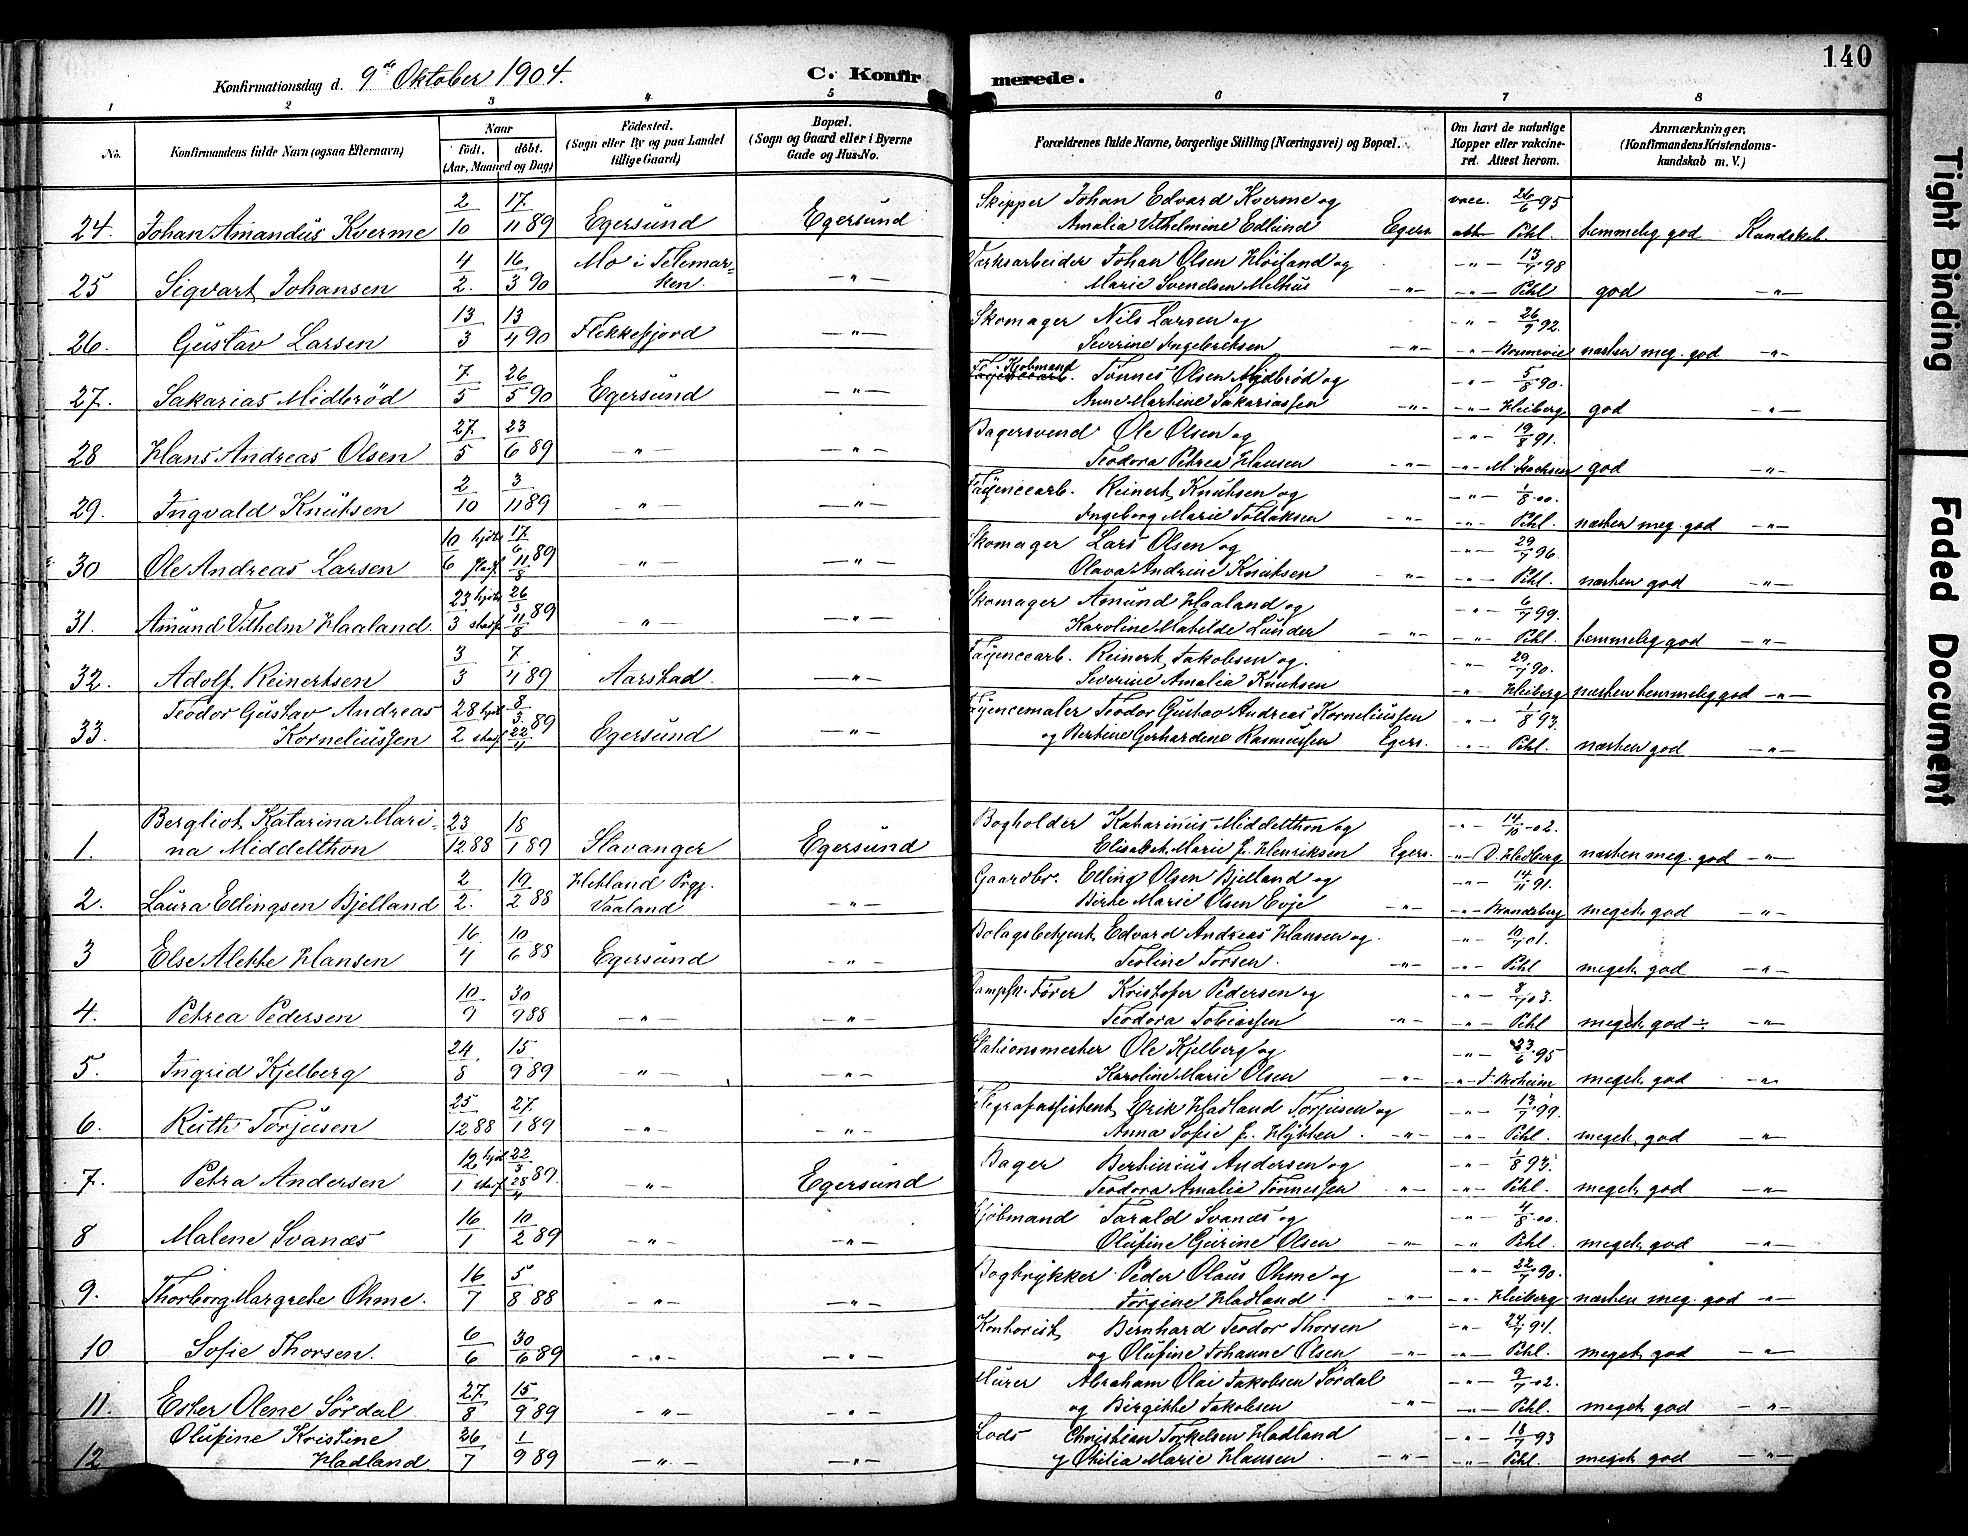 140
Konfirmationsdag d. 9de Oktober 1904.
C. Konfirmerede.
1 2 3 4 5 6 7 8
No.
Konfirmandens fulde Navn (ogsaa Efternavn)
Naar
födt. döbt.
(Aar, Maaned og Dag)
Födested.
(Sogn eller By og paa Landet
tillige Gaard)
Bopæl.
(Sogn og Gaard eller i Byerne
Gade og Hus-No.
Forældrenes fulde Navne, borgerlige Stilling (Næringsvei) og Bopæl.
Om havt de naturlige
Kopper eller vakcine-
ret. Attest herom.
Anmærkninger.
(Konfirmandens Kristendoms-
kundskab m. V.)
24. Johan Amandus Kverme 2/10 17/11 89 Egersund Egersund
Skipper Johan Edvard Kverme og vacc. 26/6 95
Amalia Vilhelmine Edlund Egers. att. Pihl. temmelig god Kundskab.
25 Sigvart Johansen 4/2. 16/3 90 Mo i Telemarken. -"-
Værksarbeider Johan Olsen Høiland og -"- 98
Marie Svendsen Melhus -"- -"- Pihl god -"-
26. Gustav Larsen 13/3 13/4 90 Flekkefjord -"-
Skomager Nils Larsen og -"- 92.
Severine Ingebriksen -"- -"- næsten meg. god -"-
27. Sakarias Midbrød 7/5 26/5 90 Egersund -"-
Kjøbmand Tønnes Olsen Midbrød og -"- 5/8 90.
Anne Martine Sakariassen -"- -"- Heiberg god -"-
28 Hans Andreas Olsen 27/5 23/6 89 -"- -"-
Bagersvend Ole Olsen og -"- 19/8 91.
Teodora Petrea Hansen -"- -"- M. Isachsen god -"-
29. Ingvald Knutsen 2/10 3/11 89 -"- -"-
Fayencearb. Reinert Knutsen og -"- 1/8 00.
Ingeborg Marie Tollaksen -"- -"- Pihl. næsten meg. god -"-
30 Ole Andreas Larsen 10/6 hjdb. stadf. 17/6 11/8 89 -"- -"-
Skomager Lars Olsen og -"- 96.
Olava Andrine Knutsen -"- -"- Pihl. næsten god -"-
31. Amund Vilhelm Haaland. 23/3 hjdb. stadf. 26/3 11/8 89 -"- -"-
Skomager Amund Haaland og -"- 99.
Karoline Matilde Lunder -"- -"- Pihl. temmelig god -"-
32. Adolf Reinertsen 3/3 7/4 89 Aarstad. -"-
Fayencearb. Reinert Jakobsen og. -"- 90.
Severine Amalia Knutsen -"- Heiberg næsten temmelig god -"-
33. Teodor Gustav Andreas
Korneliussen 28/2 hjdb. stadf. 8/3 22/4 89 Egersund -"-
Fayencemaler Teodor Gustav Andreas Korneliussen 1/8 93.
og Bertine Gerhardine Rasmussen Egers. -"- Pihl. næsten god -"-
1. Bergliot Katarina Mari-
na Middelthon 23/12 88 18/1 89 Stavanger Egersund
Bogholder Katharinus Middelthon og -"- 14/10 02.
Elisabet Marie f. Henriksen Egers. -"- næsten meg. god -"-
2. Laura Ellingsen Bjelland 2/2. 19/2 88 Hetland Prgj. Vaaland -"-
Gaardbr. Elling Olsen Bjelland og -"- 14/11 91.
Birte Marie Olsen Evje -"- -"- meget god -"-
3 Else Alette Hansen 16/4 10/6 88 Egersund -"-
Bolagsbetjent Edvard Andreas Hansen og. -"- 01.
Teoline Torsen. -"- -"- Pihl meget god -"-
4. Petrea Pedersen 10/9 30/9 88 -"- -"-
Dampsk. Fører Kristofer Pedersen og -"- 03.
Teodora Tobiassen -"- -"- Pihl meget god ÷ -"-
5. Ingrid Kjelberg 24/8 15/9 89 -"- -"-
Stationsmester Ole Kjelberg og -"- 23/6 95
Karoline Marie Olsen -"- -"- meget god -"-
6. Ruth Torjusen 25/12 88 27/1 89 -"- -"-
Telegrafassistent Erik Hadland Torjusen og -"- 13/7 99.
Anna Sofie f. Hytten. -"- -"- Pihl. meget god -"-
7. Petra Andersen 12/1 hjd. stadf. 22/3 28/4 89. -"- Egersund
Bager Bertinius Andersen og -"- 1/8 93.
Teodora Amalia Tønnessen -"- -"- Pihl. meget god -"-
8 Malene Svanæs 16/1 10/2 89 -"- -"-
Kjøbmand Tarald Svanæs og -"- 4/8 00.
Olufine Gurine Olsen -"- -"- Pihl. meget god -"-
9. Thorborg Margrete Ohme. 16/7 5/8 88 -"- -"-
Bogtrykker Peder Olaus Ohme og -"- 22/7 90.
Jørgine Hadland. -"- -"- Heiberg næsten meg. god -"-
10 Sofie Thorsen. 6/6 30/6 89 -"- -"-
Kontorist Bernhard Teodor Thorsen -"-
og Olufine Johanne Olsen -"- -"- Pihl. meget god -"-
11. Ester Olene Sørdal 27/8 15/9 89 -"- -"-
Murer Abraham Olai Jakobsen Sørdal -"- 02.
og Birgitte Jakobsen -"- -"- Pihl. meget god -"-
12 Olufine Kristine
Hadland 26/7 1/9 89 -"- -"-
Lods Christian Torkelsen Hadland -"- 18/7 93
og Otilia Marie Hansen. -"- -"- Pihl. meget god -"-
Tight Binding
Faded Document